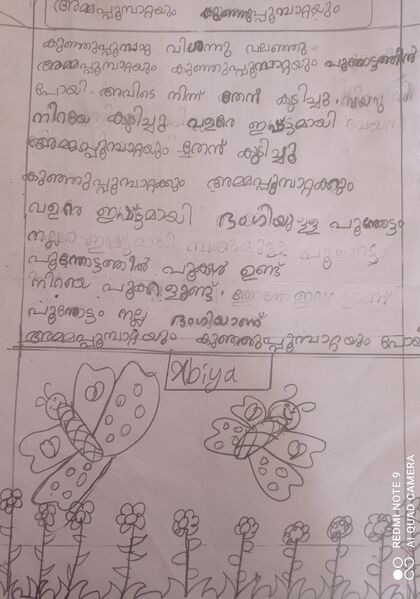 അമ്മപ്പൂമ്പാറ്റയും കുഞ്ഞുപ്പൂമ്പാറ്റയും
കുഞ്ഞുപ്പൂമ്പാറ്റ വിശന്നു വലഞ്ഞു
അമ്മപ്പൂമ്പാറ്റയും കുഞ്ഞുപ്പൂമ്പാറ്റയും പൂന്തോട്ടത്തിൽ
പോയി അവിടെ നിന്ന് തേൻ കുടിച്ചു. വയറു
നിറയേ കുടിച്ചു വളരെ ഇഷ്ട്ടമായി
അമ്മപ്പൂമ്പാറ്റയും തേൻ കുടിച്ചു
കുഞ്ഞുപ്പൂമ്പാറ്റക്കും അമ്മപ്പൂമ്പാറ്റക്കും
വളരെ ഇഷ്ട്ടമായി ഭംഗിയുള്ള പൂന്തോട്ടം
പൂന്തോട്ടത്തിൽ പൂക്കൾ ഉണ്ട്
നിറയെ പൂക്കളുണ്ട്.
പൂന്തോട്ടം നല്ല ഭംഗിയാണ്
അമ്മപ്പൂമ്പാറ്റയും കുഞ്ഞുപ്പൂമ്പാറ്റയും പോയി
Abiya
REDMI NOTE 9
AI QUAD CAMERA